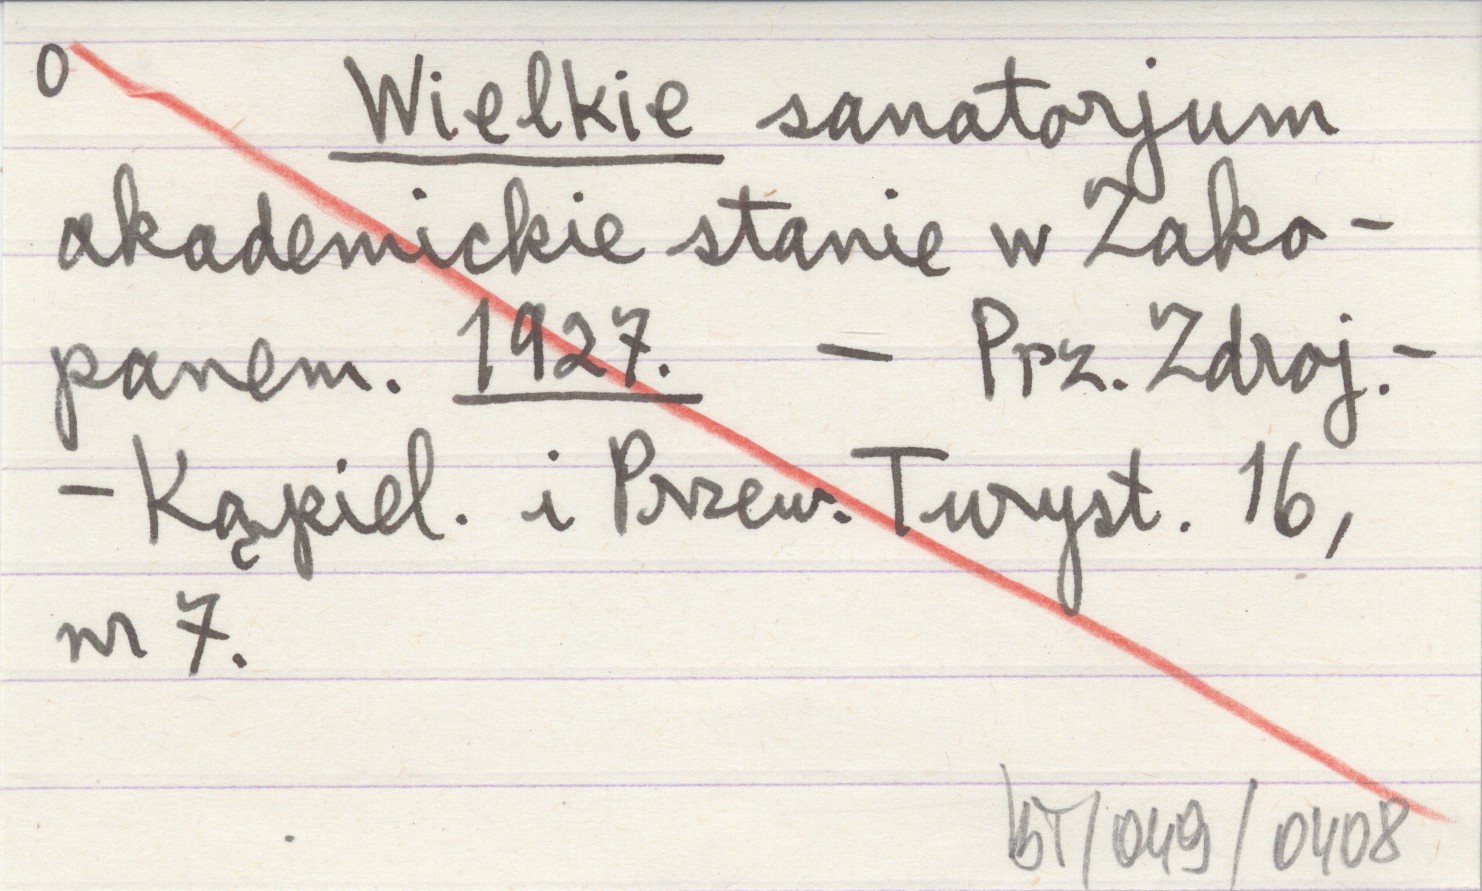 0 Wielkie sanatorjum
akademickie stanie w Zako-
panem. 1927. - Prz. Zdroj.-
- Kąpiel. i Przew. Turyst. 16,
nr 7.
bT/049/0408